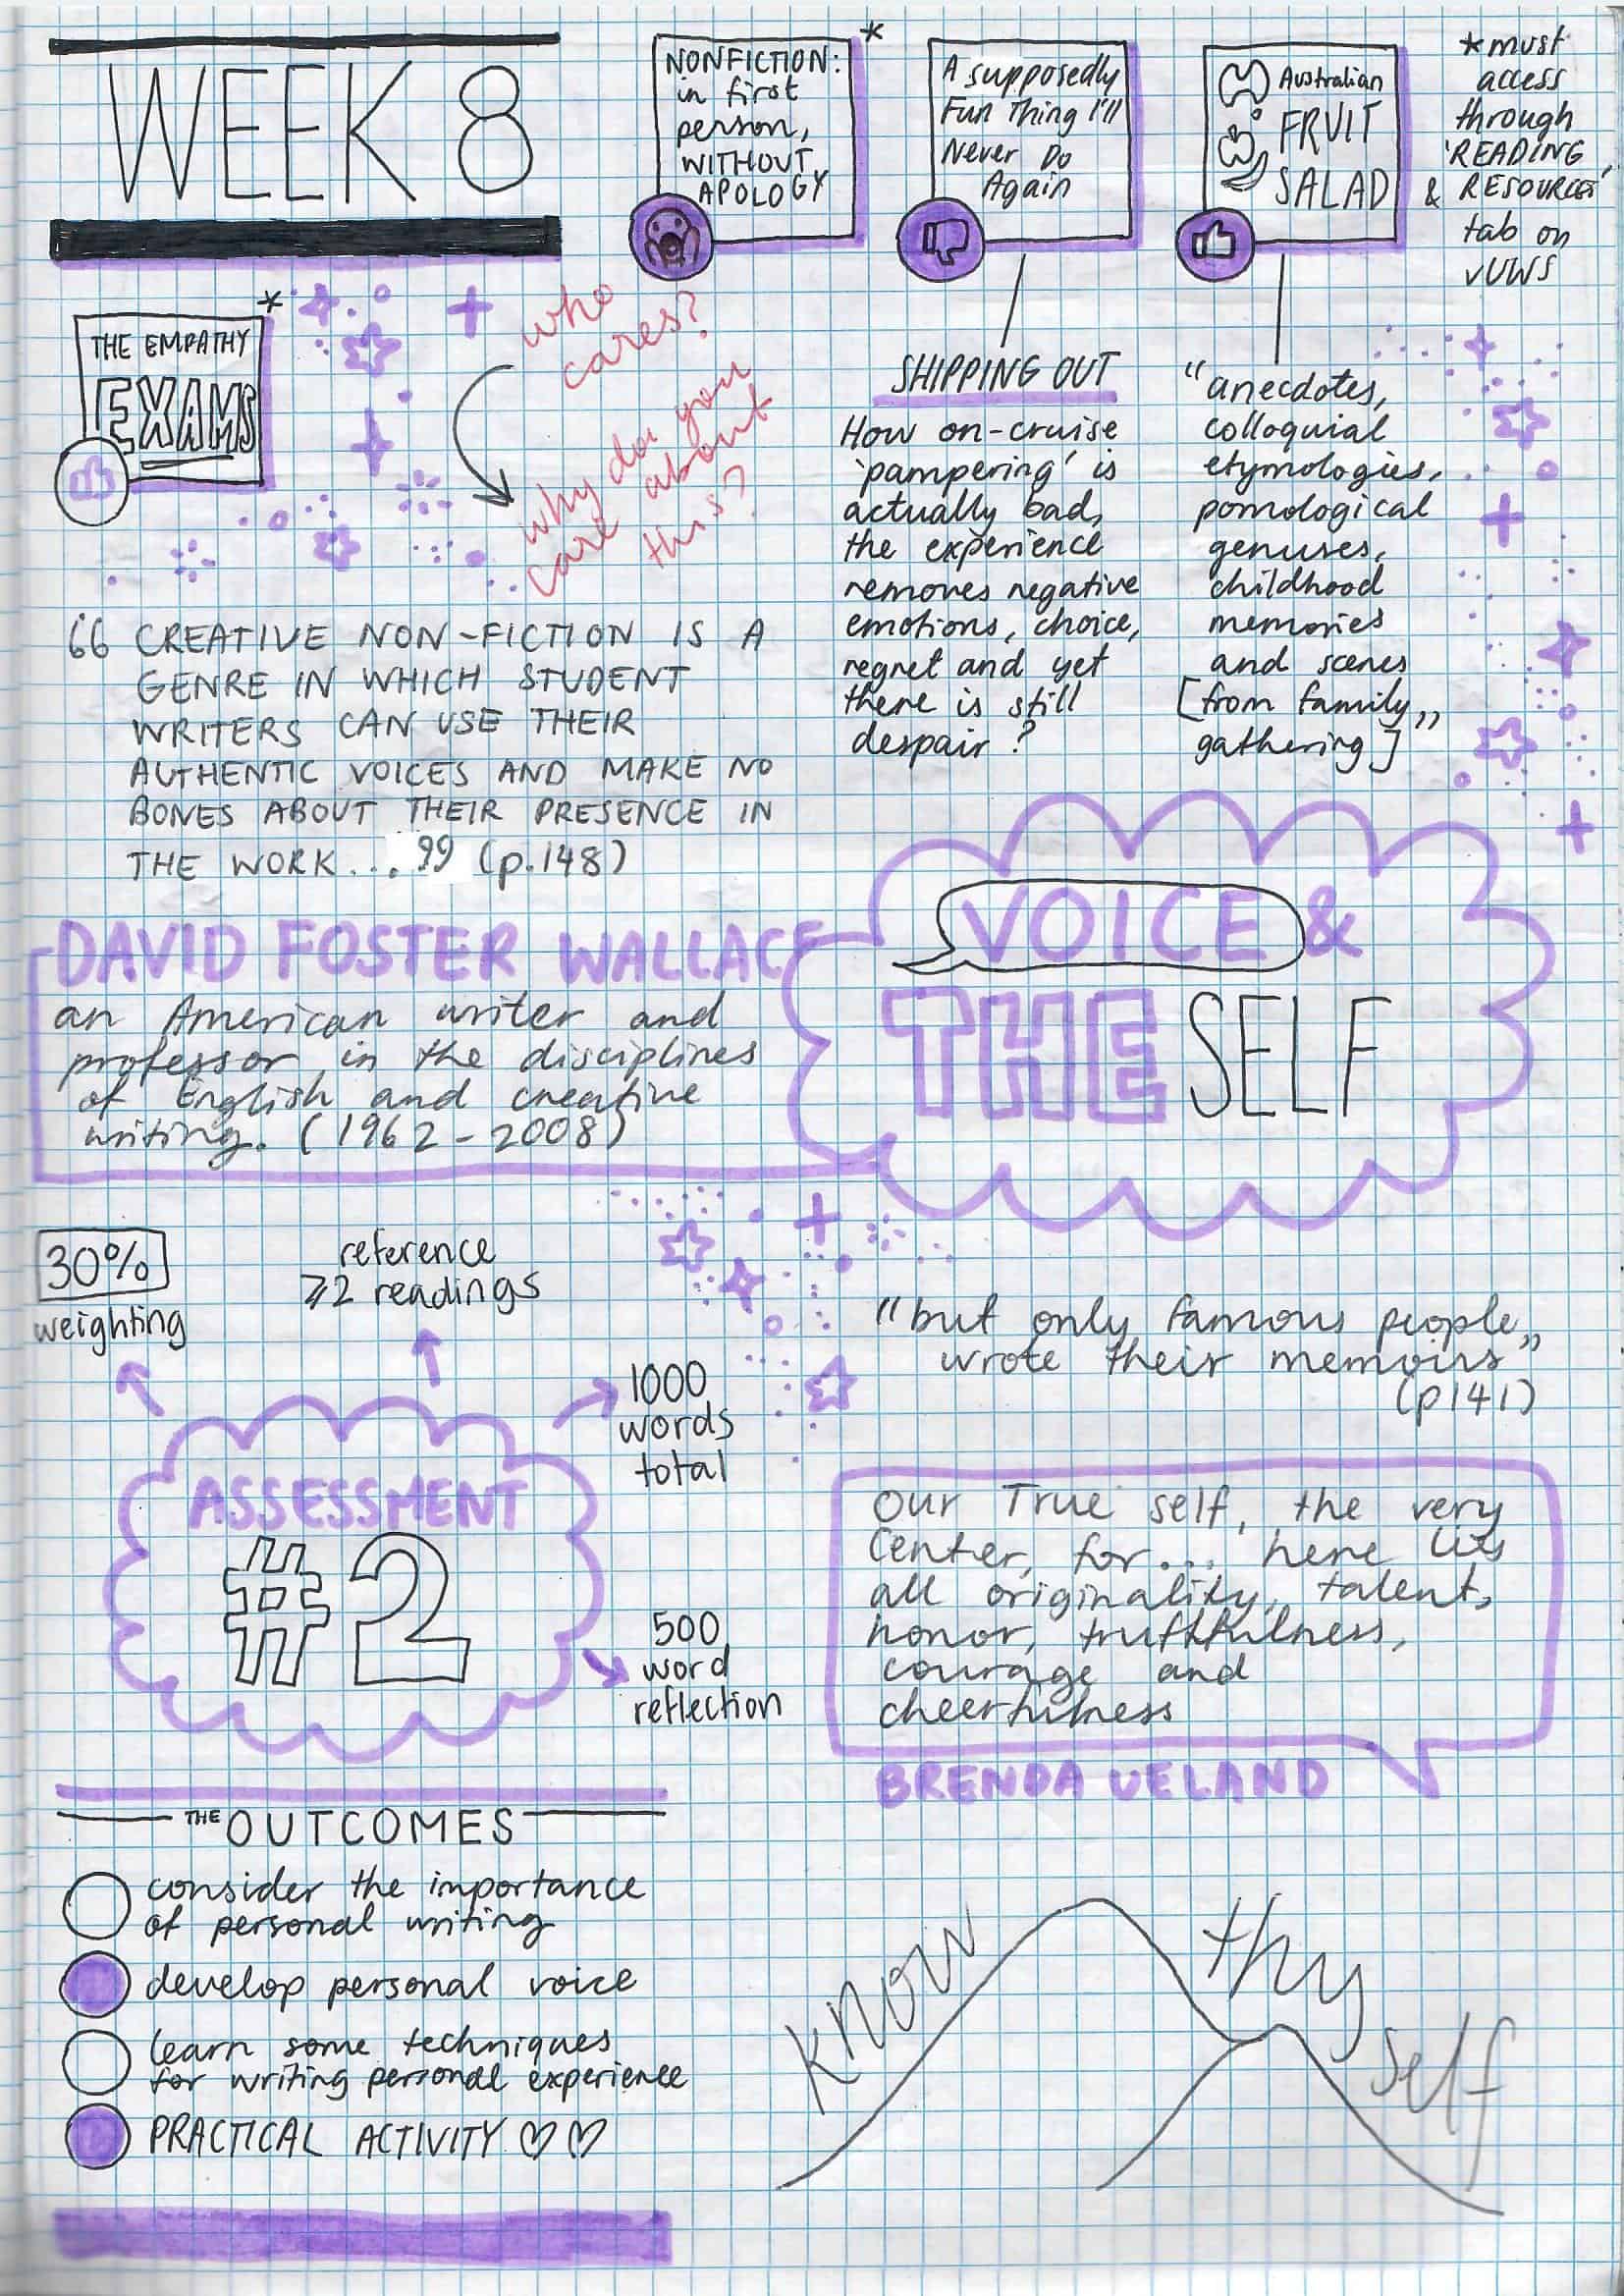 WEEK 8
NONFICTION: *
in first
person,
WITHOUT
APOLOGY
A supposedly
Fun Thing I'll
Never Do
Again
Australian
FRUIT
SALAD
*must
access
through
'READING
& RESOURCES'
tab on
vUWS
THE EMPATHY *
EXAMS
who
cares?
why do you
care about
this?
SHIPPING OUT
How on-cruise
'pampering' is
actually bad,
the experience
removes negative
emotions, choice,
regret and yet
there is still
despair?
"anecdotes,
colloquial
etymologies,
pomological
genuses,
childhood
memories
and scenes
[from family"
gathering]
"CREATIVE NON-FICTION IS A
GENRE IN WHICH STUDENT
WRITERS CAN USE THEIR
AUTHENTIC VOICES AND MAKE NO
BONES ABOUT THEIR PRESENCE IN
THE WORK..." (p.148)
DAVID FOSTER WALLACE
an American writer and
professor in the disciplines
of English and creative
writing. (1962-2008)
VOICE &
THE SELF
30%
weighting
reference
≥2 readings
1000
words
total
ASSESSMENT
#2
500
word
reflection
"but only famous people
wrote their memoirs"
(p141)
Our True self, the very
Center, for... here lies
all originality, talent,
honor, truthfulness,
courage and
cheerfulness
BRENDA UELAND
THE OUTCOMES
consider the importance
of personal writing
develop personal voice
learn some techniques
for writing personal experience
PRACTICAL ACTIVITY ♡♡
know
thy
self